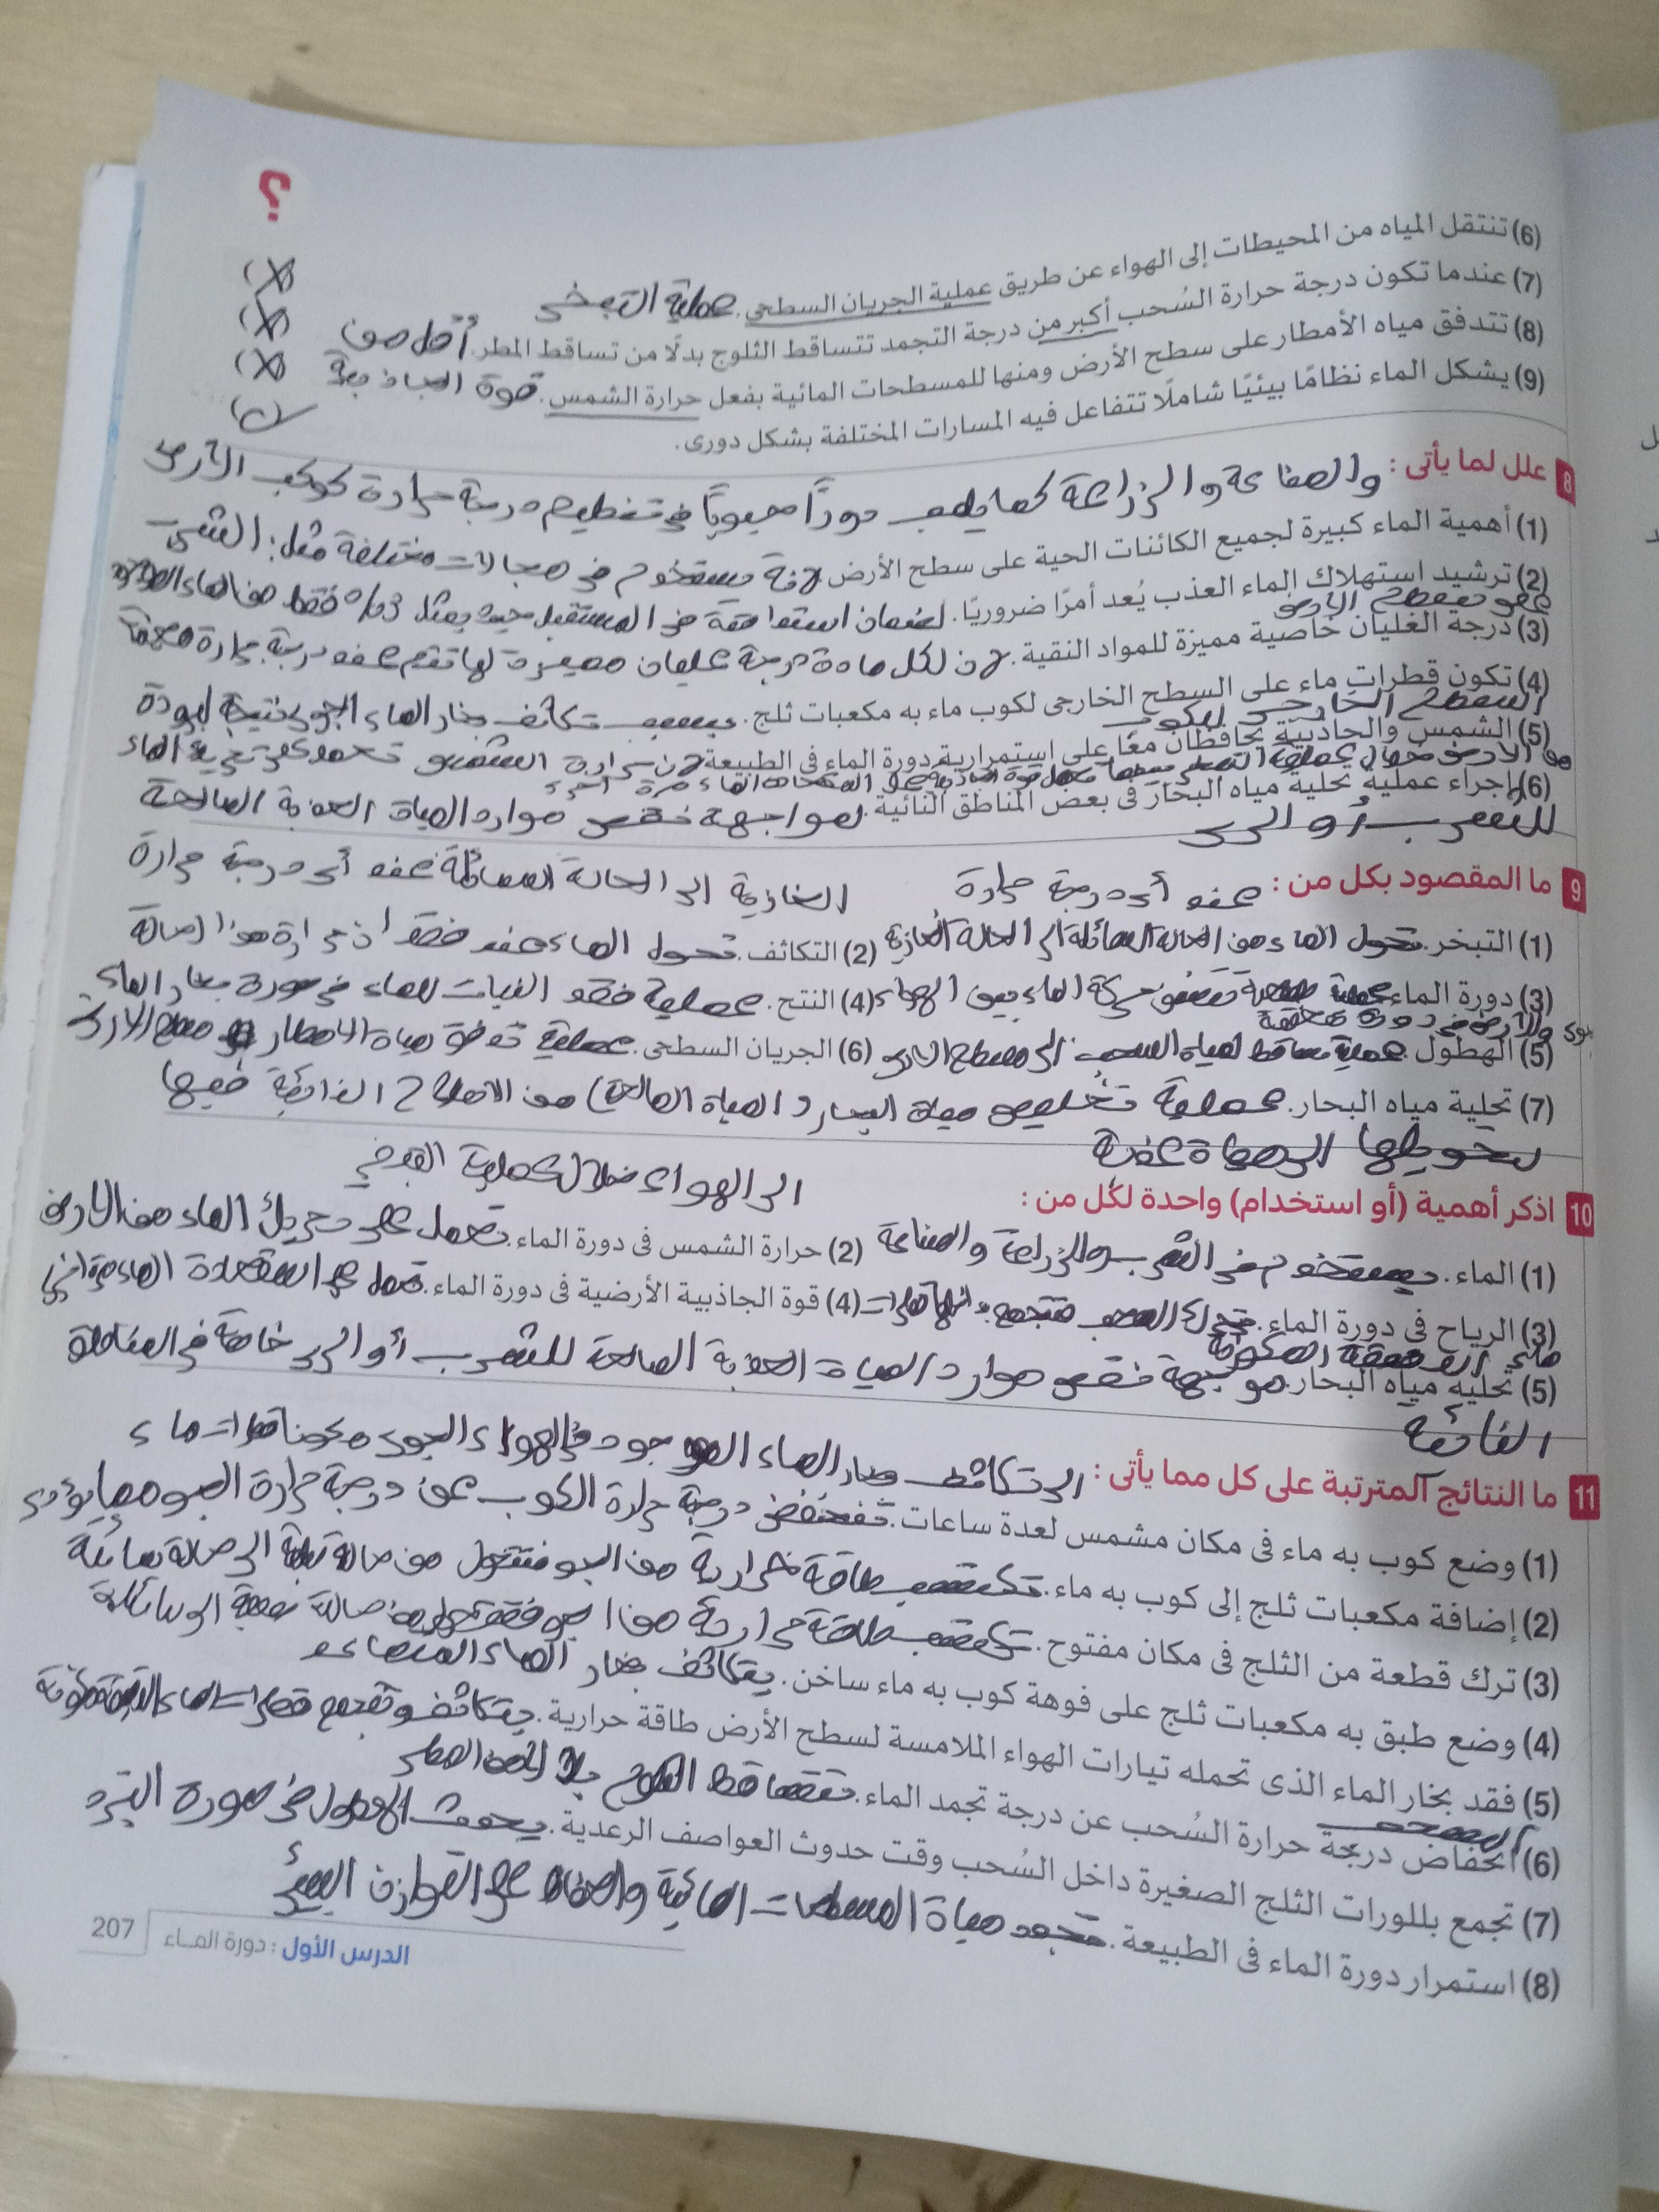 ؟
(6) تنتقل المياه من المحيطات إلى الهواء عن طريق عملية الجريان السطحى. عملية التبخر (X)
(7) عندما تكون درجة حرارة السُحب أكبر من درجة التجمد تتساقط الثلوج بدلًا من تساقط المطر. أقل من (X)
(8) تتدفق مياه الأمطار على سطح الأرض ومنها للمسطحات المائية بفعل حرارة الشمس. قوة الجاذبية (X)
(9) يشكل الماء نظامًا بيئيًا شاملًا تتفاعل فيه المسارات المختلفة بشكل دورى. (✓)
8 علل لما يأتى :
والصناعة والزراعة كما يلعب دورًا حيويًا فى تنظيم درجة حرارة كوكب الأرض
(1) أهمية الماء كبيرة لجميع الكائنات الحية على سطح الأرض. لانه يستخدم فى مجالات مختلفة مثل: الشرب
(2) ترشيد استهلاك الماء العذب يُعد أمرًا ضروريًا. لضمان استدامته فى المستقبل حيث يمثل 3% فقط من الماء
على سطح الأرض
(3) درجة الغليان خاصية مميزة للمواد النقية. لان لكل مادة درجة غليان مميزة لها تتم عند درجة حرارة معينة
(4) تكون قطرات ماء على السطح الخارجى لكوب ماء به مكعبات ثلج. بسبب تكاثف بخار الماء الجوى نتيجة لبرودة
السطح الخارجى للكوب
(5) الشمس والجاذبية يحافظان معًا على استمرارية دورة الماء فى الطبيعة. لان حرارة الشمس تعمل على تحريك الماء
من الأرض خلال عملية التبخر بينما تعمل قوة الجاذبية على استعادة الماء مرة أخرى
(6) إجراء عملية تحلية مياه البحار فى بعض المناطق النائية. لمواجهة نقص موارد المياة العذبة الصالحة
للشرب أو الرى
9 ما المقصود بكل من :
عند أى درجة حرارة
الغازية الى الحالة السائلة عند أى درجة حرارة
(1) التبخر. تحول الماء من الحالة السائلة الى الحالة الغازية (2) التكاثف. تحول الماء عند فقد الحرارة من الحالة
(3) دورة الماء. عملية طبيعية تتضمن حركة الماء بين الهواء (4) النتح. عملية فقد النبات للماء فى صورة بخار الماء
والأرض فى دورة مغلقة
(5) الهطول. عملية تساقط لمياه السحب الى سطح الأرض (6) الجريان السطحى. عملية تدفق مياة الأمطار سطح الأرض
(7) تحلية مياه البحار. عملية تخليص مياة البحار (المياة المالحة) من الأملاح الذائبة فيها
لتحويلها الى مياة عذبة
10 اذكر أهمية (أو استخدام) واحدة لكل من :
الى الهواء خلال عملية التبخر
(1) الماء. يستخدم فى الشرب والزراعة والصناعة (2) حرارة الشمس فى دورة الماء. تعمل على تحريك الماء من الأرض
(3) الرياح فى دورة الماء. تحرك السحب فتتجمع (4) قوة الجاذبية الأرضية فى دورة الماء. تعمل على استعادة الماء مرة اخرى
(5) تحلية مياه البحار. مواجهة نقص موارد المياة العذبة الصالحة للشرب أو الرى خاصة فى المناطق
النائية
11 ما النتائج المترتبة على كل مما يأتى :
الى تكاثف بخار الماء الموجود فى الهواء الجوى مكونا قطرات ماء
(1) وضع كوب به ماء فى مكان مشمس لعدة ساعات.
(2) إضافة مكعبات ثلج إلى كوب به ماء. تنخفض درجة حرارة الكوب عن درجة حرارة الجو مما يؤدى
(3) ترك قطعة من الثلج فى مكان مفتوح. تكتسب طاقة حرارية من الجو فتتحول من حالة صلبة الى حالة سائلة
(4) وضع طبق به مكعبات ثلج على فوهة كوب به ماء ساخن. يتكاثف بخار الماء المتصاعد
(5) فقد بخار الماء الذى تحمله تيارات الهواء الملامسة لسطح الأرض طاقة حرارية. يتكاثف وتتجمع قطرات الماء مكونة
السحب
(6) انخفاض درجة حرارة السُحب عن درجة تجمد الماء. تتساقط الثلوج بدلا من المطر
(7) تجمع بللورات الثلج الصغيرة داخل السُحب وقت حدوث العواصف الرعدية. يحدث الهطول فى صورة البَرَد
(8) استمرار دورة الماء فى الطبيعة. تجدد مياة المسطحات المائية والحفاظ على التوازن البيئى
الدرس الأول : دورة المــاء
207